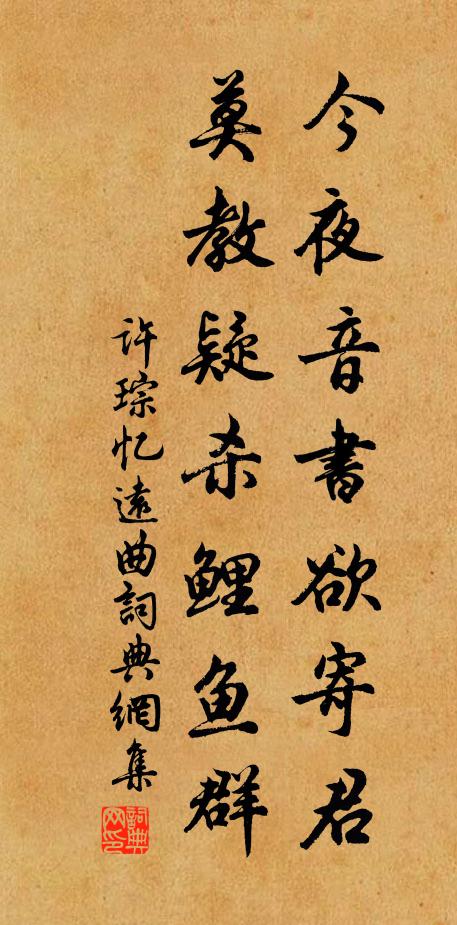 今夜音書欲寄君
莫教疑杀鲤鱼群
许琮忆遠曲詞典網集
詞典网印